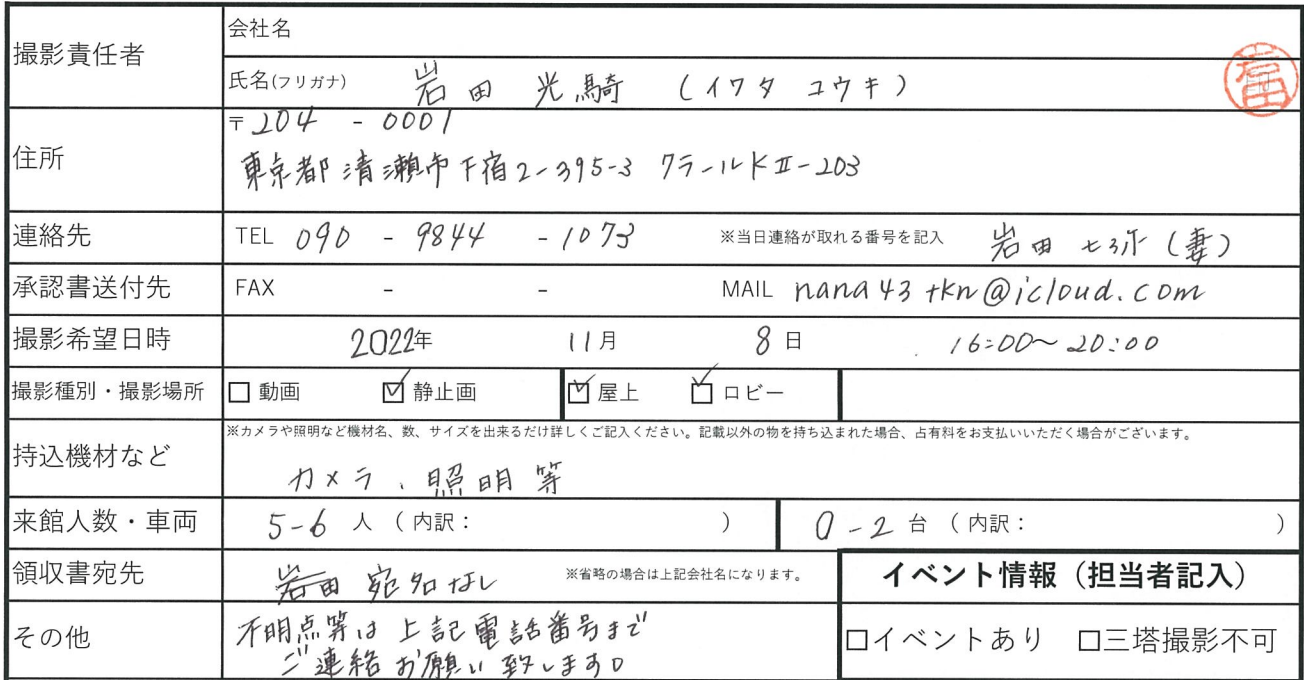 撮影責任者
会社名
氏名(フリガナ) 岩田 光騎 (イワタ コウキ)
住所
〒204 - 0001
東京都清瀬市下宿2-395-3 クラールKⅡ-203
連絡先 TEL 090 - 9844 - 1073 ※当日連絡が取れる番号を記入 岩田 七弥(妻)
承認書送付先 FAX - - MAIL nana43tkn@icloud.com
撮影希望日時 2022年 11月 8日 16:00〜20:00
撮影種別・撮影場所 □ 動画 ☑ 静止画 ☑ 屋上 ☑ ロビー
持込機材など
※カメラや照明など機材名、数、サイズを出来るだけ詳しくご記入ください。記載以外の物を持ち込まれた場合、占有料をお支払いいただく場合がございます。
カメラ、照明等
来館人数・車両 5-6 人 (内訳: ) 0-2 台 (内訳: )
領収書宛先 岩田 宛名なし ※省略の場合は上記会社名になります。
イベント情報(担当者記入)
その他
不明点等は上記電話番号まで
ご連絡お願い致します。
□イベントあり □三塔撮影不可